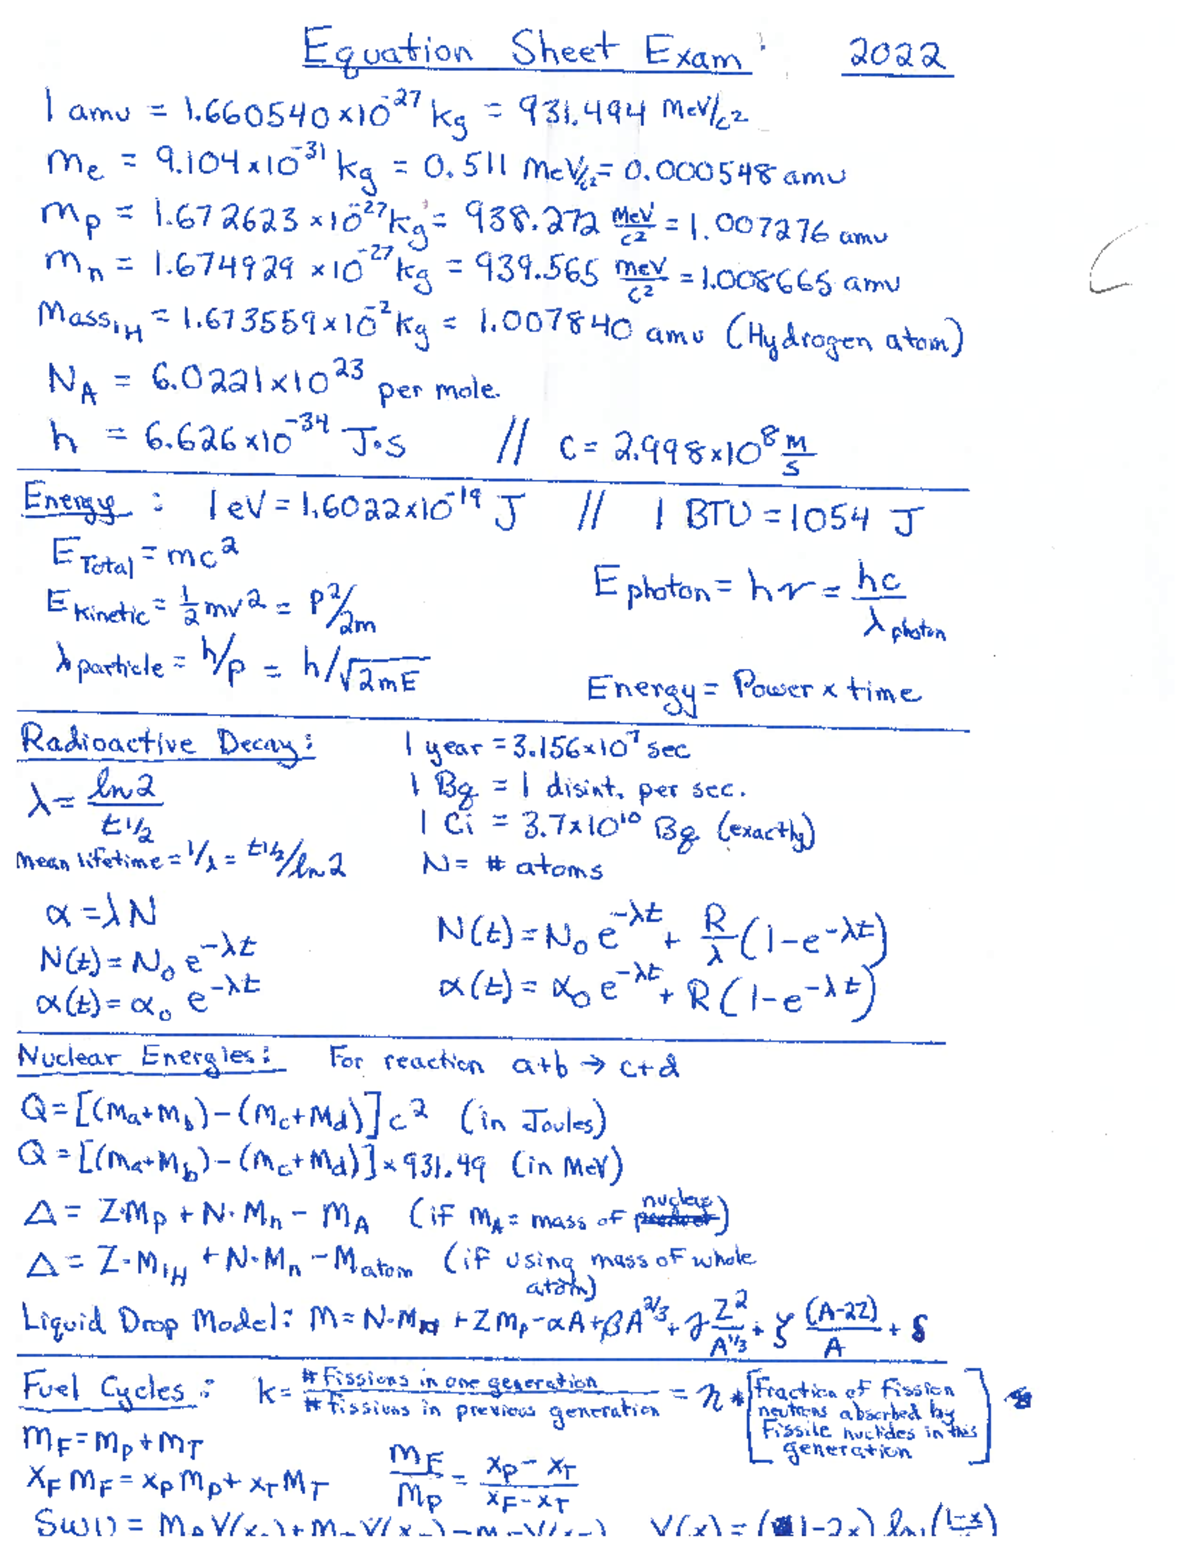 Equation Sheet Exam: 2022
1 amu = 1.660540×10^-27 kg = 931.494 MeV/c²
me = 9.104×10^-31 kg = 0.511 MeV/c² = 0.000548 amu
mp = 1.672623×10^-27 kg = 938.272 MeV/c² = 1.007276 amu
mn = 1.674929×10^-27 kg = 939.565 MeV/c² = 1.008665 amu
Mass₁H = 1.673559×10^-2 kg = 1.007840 amu (Hydrogen atom)
NA = 6.0221×10^23 per mole.
h = 6.626×10^-34 J·s // c = 2.998×10^8 m/s
Energy: 1 eV = 1.6022×10^-19 J // 1 BTU = 1054 J
E Total = mc²
E photon = hν = hc/λ photon
E kinetic = ½mv² = P²/2m
λ particle = h/p = h/√2mE
Energy = Power × time
Radioactive Decay: 1 year = 3.156×10^7 sec
λ = ln2/t1/2
1 Bq = 1 disint. per sec.
1 Ci = 3.7×10^10 Bq (exactly)
mean lifetime = 1/λ = t1/2/ln2
N = # atoms
α = λN
N(t) = N₀e^-λt + R/λ(1-e^-λt)
N(t) = N₀e^-λt
α(t) = α₀e^-λt
α(t) = α₀e^-λt + R(1-e^-λt)
Nuclear Energies: For reaction a+b → c+d
Q = [(ma+mb)-(mc+md)]c² (in Joules)
Q = [(ma+mb)-(mc+md)]×931.49 (in MeV)
Δ = Z·mp + N·mn - mA (if mA = mass of nucleus)
Δ = Z·m₁H + N·mn - Matom (if using mass of whole atom)
Liquid Drop Model: m = N·mn + Zmp - αA + βA^2/3 + γ Z²/A^1/3 + ζ (A-2Z)/A + δ
Fuel Cycles: k = # fissions in one generation / # fissions in previous generation = η * [Fraction of fission neutrons absorbed by fissile nuclides in this generation]
mF = mP + mT
xF mF = xP mP + xT mT mF/mP = xP - xT / xF - xT